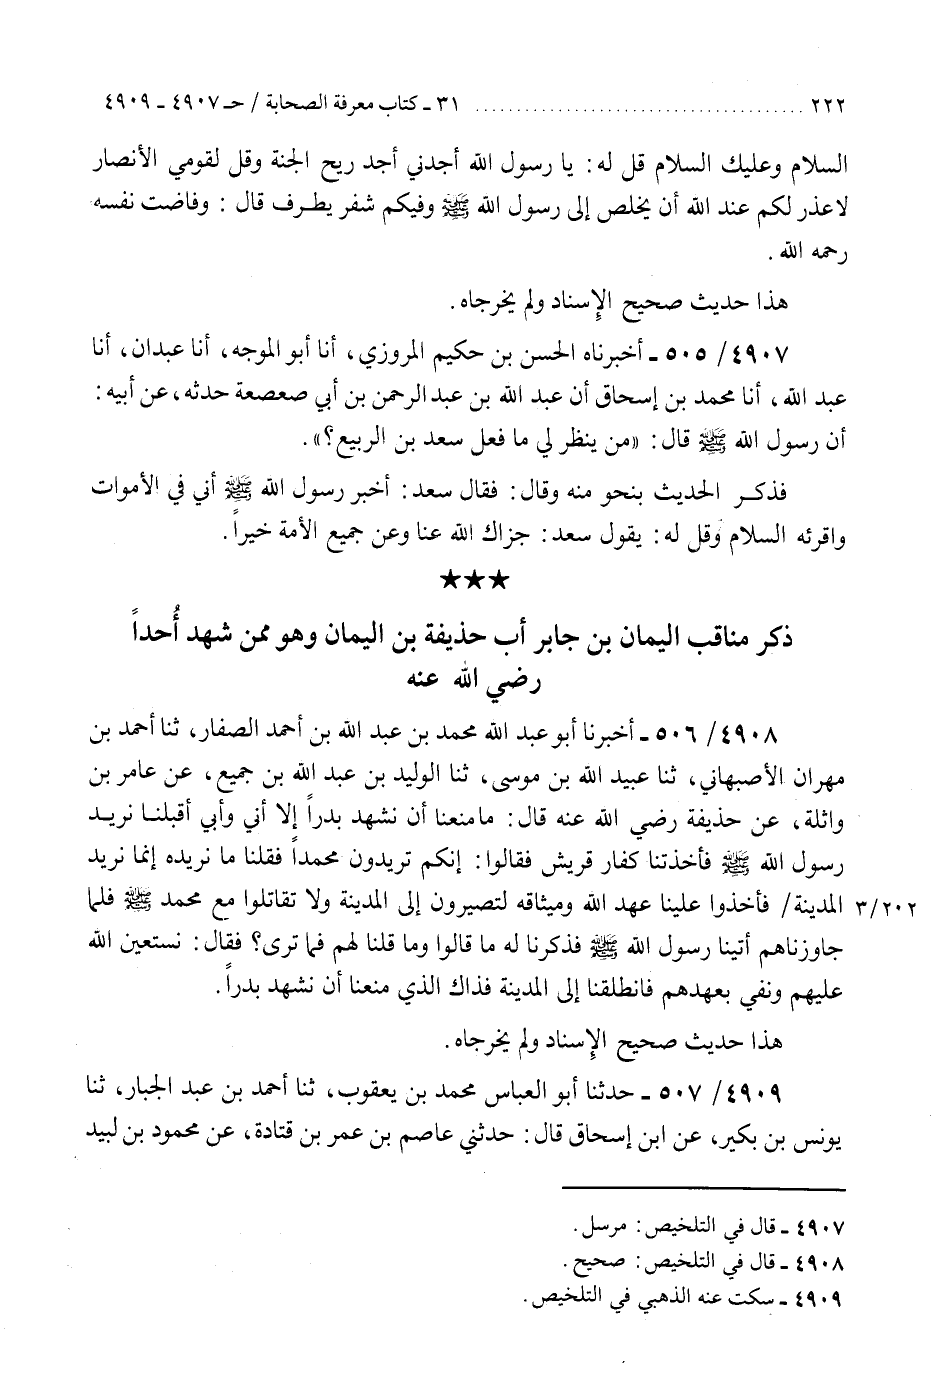 ٢٢٢ ..................................... ٣١ ـ كتاب معرفة الصحابة / حـ ٤٩٠٧ ـ ٤٩٠٩
السلام وعليك السلام قل له: يا رسول الله أجدني أجد ريح الجنة وقل لقومي الأنصار
لاعذر لكم عند الله أن يخلص إلى رسول الله ﷺ وفيكم شفر يطرف قال : وفاضت نفسه
رحمه الله .
هذا حديث صحيح الإسناد ولم يخرجاه.
٤٩٠٧/ ٥٠٥ ـ أخبرناه الحسن بن حكيم المروزي، أنا أبو الموجه، أنا عبدان، أنا
عبد الله، أنا محمد بن إسحاق أن عبد الله بن عبد الرحمن بن أبي صعصعة حدثه، عن أبيه:
أن رسول الله ﷺ قال: «من ينظر لي ما فعل سعد بن الربيع؟».
فذكـر الحديث بنحو منه وقال: فقال سعد: أخبر رسول الله ﷺ أني في الأموات
واقرئه السلام وقل له: يقول سعد: جزاك الله عنا وعن جميع الأمة خيراً.
★★★
ذكر مناقب اليمان بن جابر أب حذيفة بن اليمان وهو ممن شهد أُحداً
رضي الله عنه
٤٩٠٨/ ٥٠٦ ـ أخبرنا أبو عبد الله محمد بن عبد الله بن أحمد الصفار، ثنا أحمد بن
مهران الأصبهاني، ثنا عبيد الله بن موسى، ثنا الوليد بن عبد الله بن جميع، عن عامر بن
واثلة، عن حذيفة رضي الله عنه قال: مامنعنا أن نشهد بدراً إلا أني وأبي أقبلنـا نريـد
رسول الله ﷺ فأخذتنا كفار قريش فقالوا: إنكم تريدون محمداً فقلنا ما نريده إنما نريد
٣/٢٠٢ المدينة/ فأخذوا علينا عهد الله وميثاقه لتصيرون إلى المدينة ولا تقاتلوا مع محمد ﷺ فلما
جاوزناهم أتينا رسول الله ﷺ فذكرنا له ما قالوا وما قلنا لهم فما ترى؟ فقال: نستعين الله
عليهم ونفي بعهدهم فانطلقنا إلى المدينة فذاك الذي منعنا أن نشهد بدراً.
هذا حديث صحيح الإسناد ولم يخرجاه.
٤٩٠٩/ ٥٠٧ ـ حدثنا أبو العباس محمد بن يعقوب، ثنا أحمد بن عبد الجبار، ثنا
يونس بن بكير، عن ابن إسحاق قال: حدثني عاصم بن عمر بن قتادة، عن محمود بن لبيد
٤٩٠٧ ـ قال في التلخيص: مرسل.
٤٩٠٨ ـ قال في التلخيص: صحيح.
٤٩٠٩ ـ سكت عنه الذهبي في التلخيص.